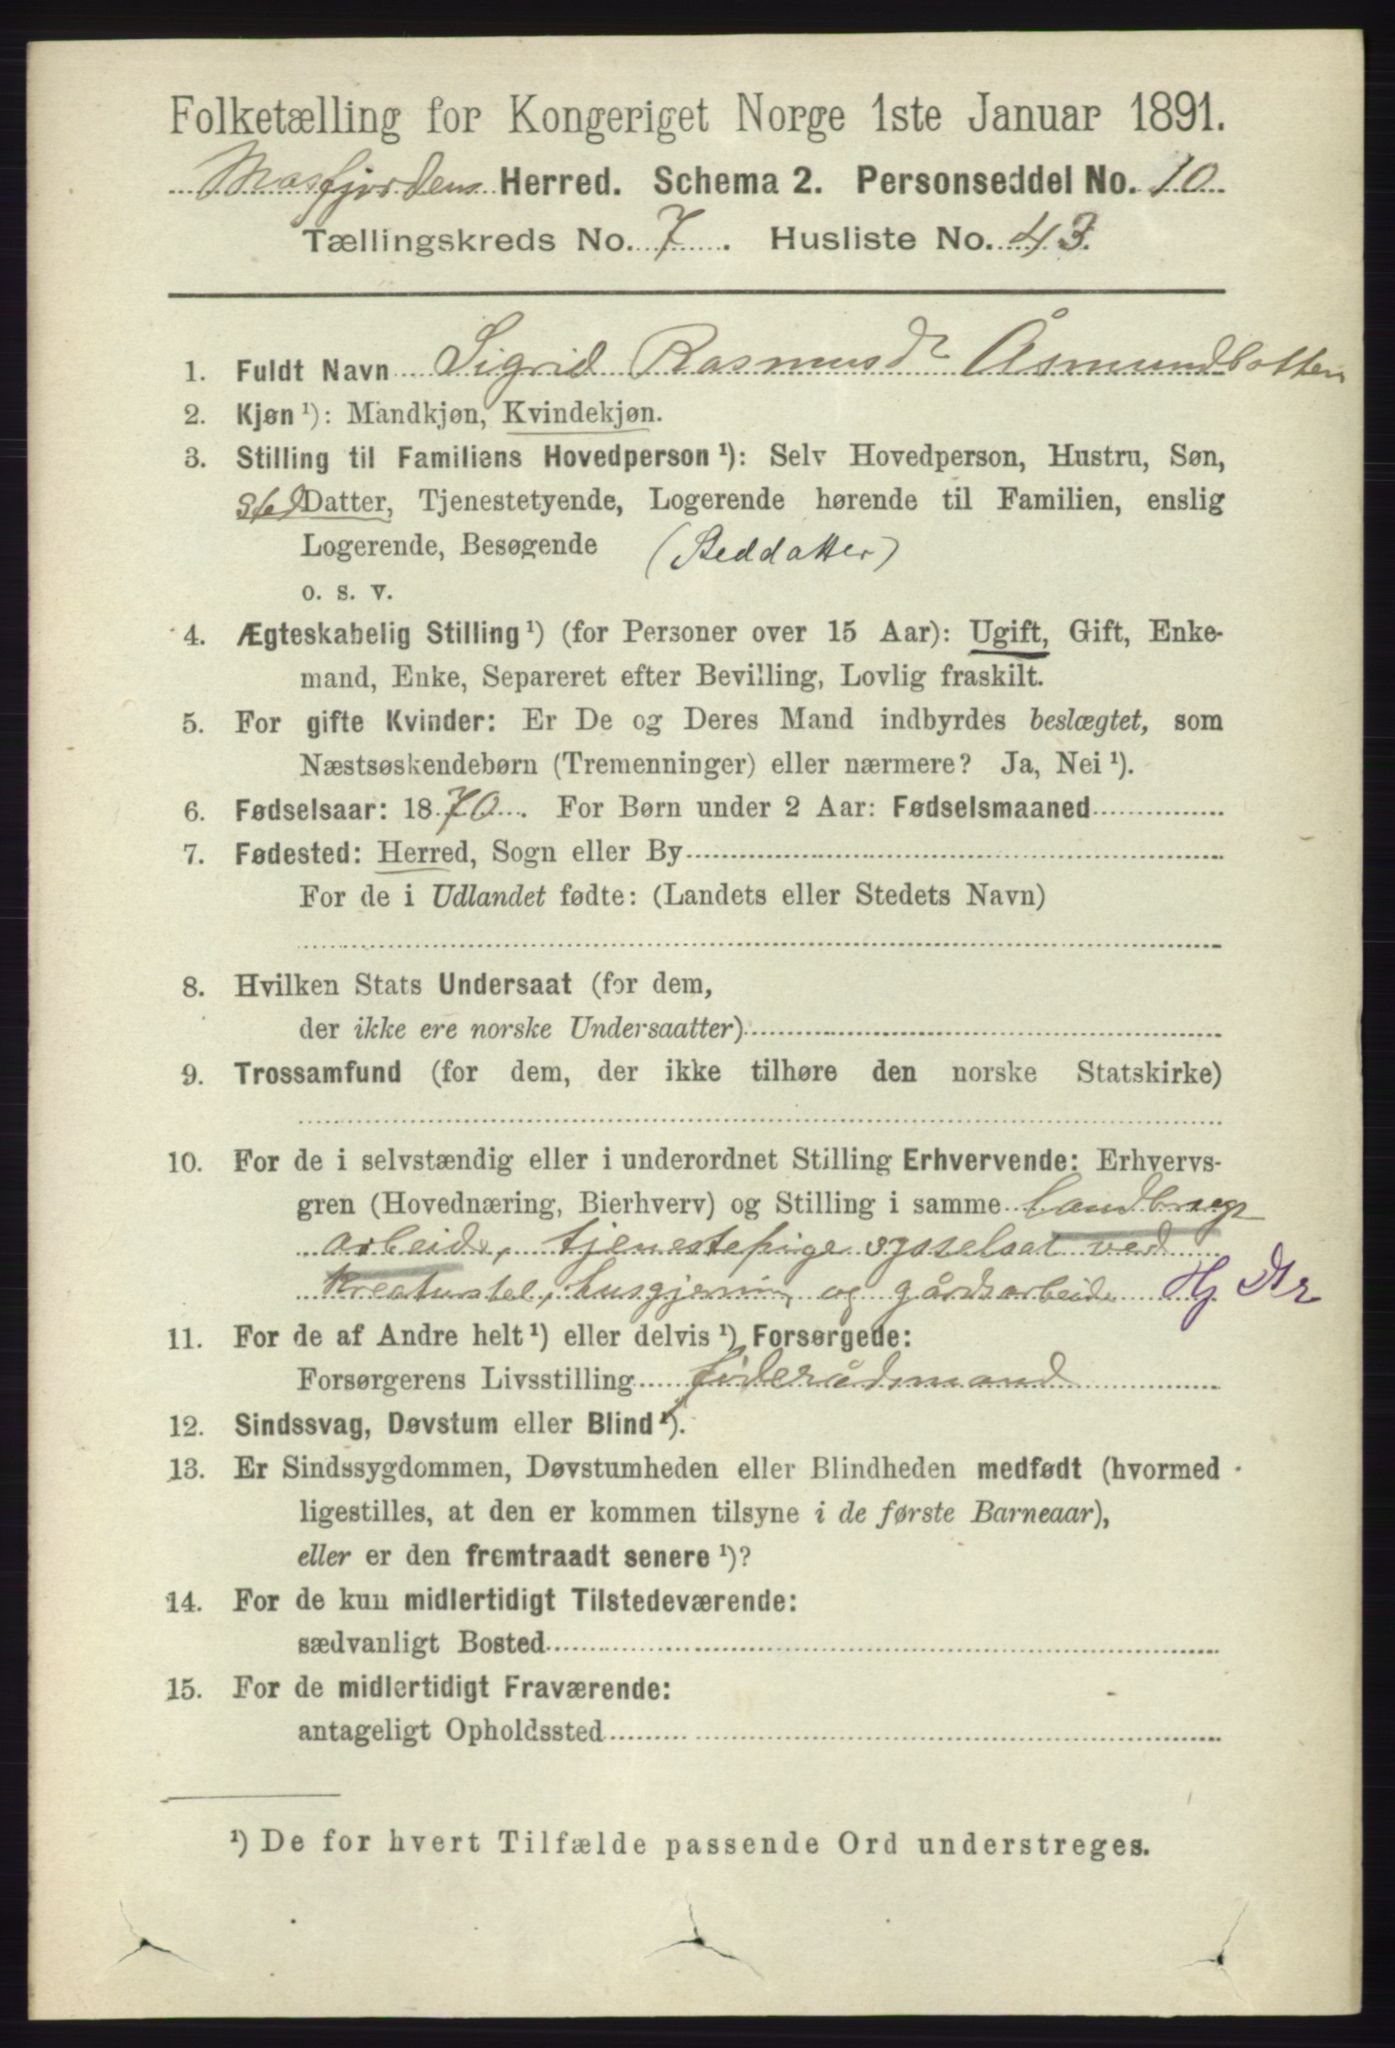 Folketælling for Kongeriget Norge 1ste Januar 1891.
Masfjordens Herred. Schema 2. Personseddel No. 10
Tællingskreds No. 7. Husliste No. 43.
1. Fuldt Navn Sigrid Rasmusdr Åsmundbotten
2. Kjøn ¹): Mandkjøn, Kvindekjøn.
3. Stilling til Familiens Hovedperson ¹): Selv Hovedperson, Hustru, Søn,
Sted Datter, Tjenestetyende, Logerende hørende til Familien, enslig
Logerende, Besøgende (Steddatter)
o. s. v.
4. Ægteskabelig Stilling ¹) (for Personer over 15 Aar): Ugift, Gift, Enke-
mand, Enke, Separeret efter Bevilling, Lovlig fraskilt.
5. For gifte Kvinder: Er De og Deres Mand indbyrdes beslægtet, som
Næstsøskendebørn (Tremenninger) eller nærmere? Ja, Nei ¹).
6. Fødselsaar: 1870. For Børn under 2 Aar: Fødselsmaaned
7. Fødested: Herred, Sogn eller By
For de i Udlandet fødte: (Landets eller Stedets Navn)
8. Hvilken Stats Undersaat (for dem,
der ikke ere norske Undersaatter)
9. Trossamfund (for dem, der ikke tilhøre den norske Statskirke)
10. For de i selvstændig eller i underordnet Stilling Erhvervende: Erhvervs-
gren (Hovednæring, Bierhverv) og Stilling i samme Landbrugs
arbeide, tjenestepige sysselsat ved
Kreaturstel, husgjerning og gårdsarbeide Hj Dr
11. For de af Andre helt ¹) eller delvis ¹) Forsørgede:
Forsørgerens Livsstilling föderådsmand
12. Sindssvag, Døvstum eller Blind ¹).
13. Er Sindssygdommen, Døvstumheden eller Blindheden medfødt (hvormed
ligestilles, at den er kommen tilsyne i de første Barneaar),
eller er den fremtraadt senere ¹)?
14. For de kun midlertidigt Tilstedeværende:
sædvanligt Bosted
15. For de midlertidigt Fraværende:
antageligt Opholdssted
¹) De for hvert Tilfælde passende Ord understreges.